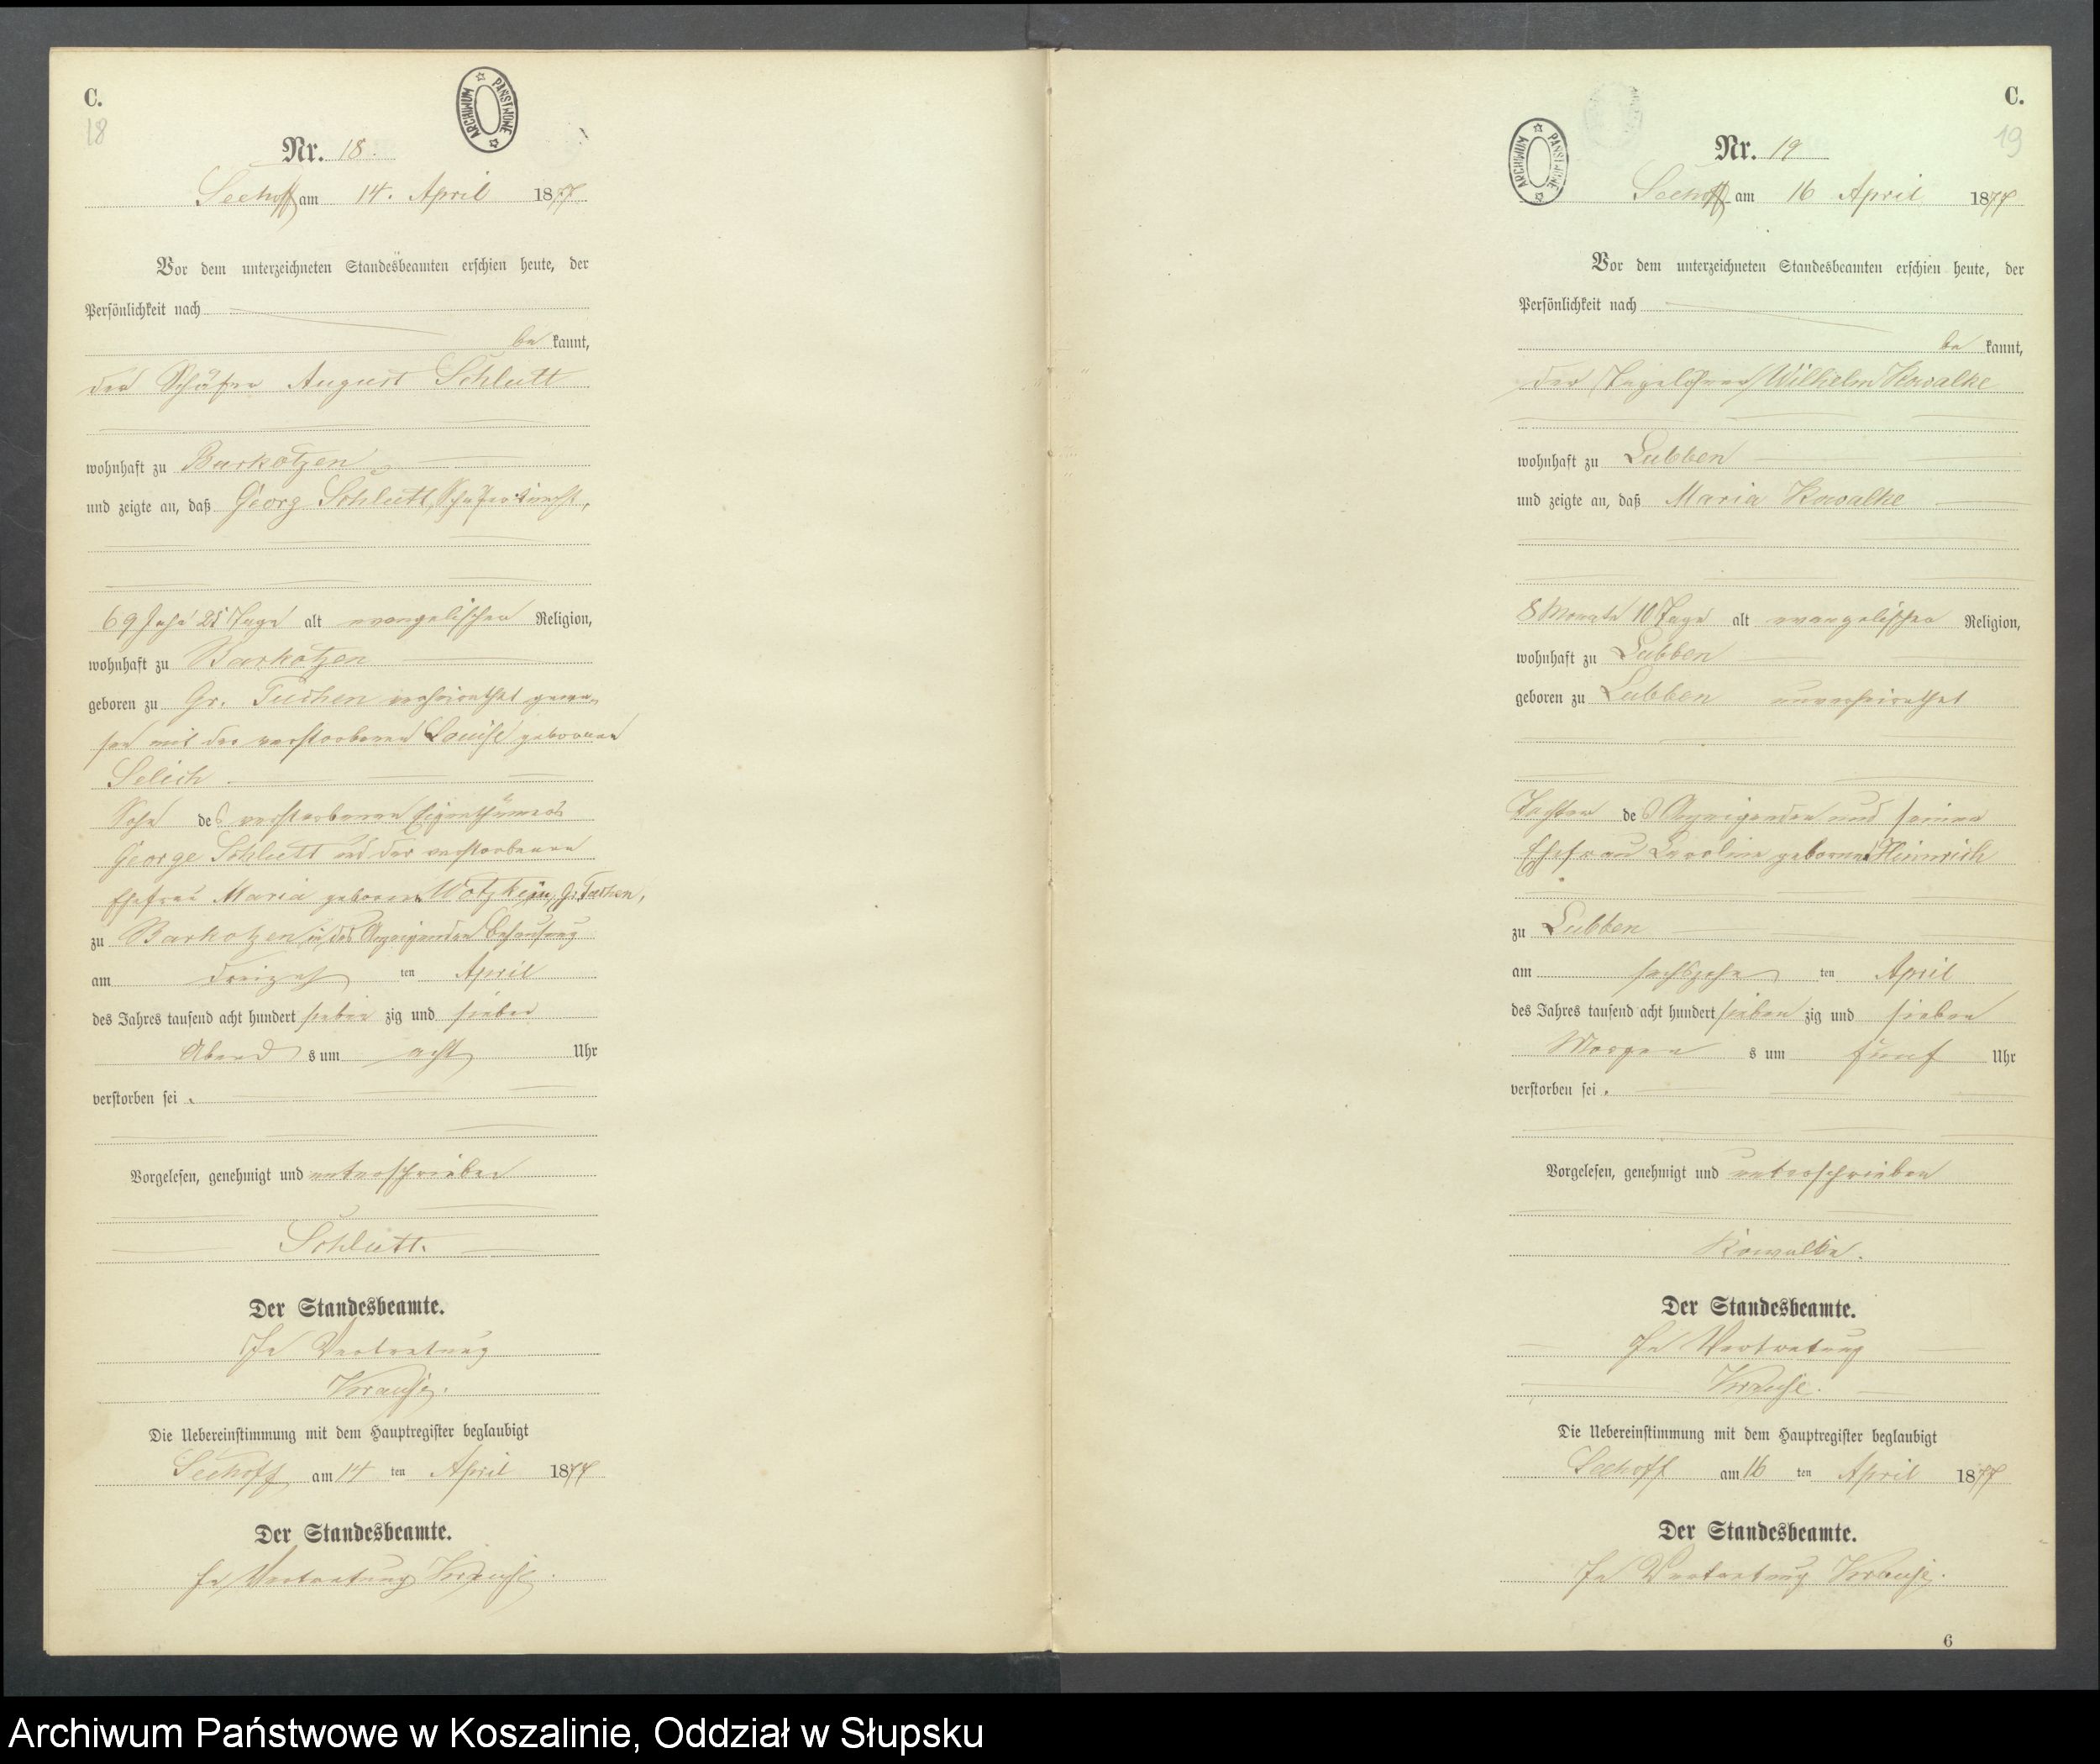 C.
18
ARCHIWUM PAŃSTWOWE
Nr. 18.
Seehoff am 14. April 1877
Vor dem unterzeichneten Standesbeamten erschien heute, der
Persönlichkeit nach
be kannt,
der Schäfer August Schlutt
wohnhaft zu Barkotzen
und zeigte an, daß Georg Schlutt, Schäferknecht,
69 Jahr 25 Tage alt evangelischer Religion,
wohnhaft zu Barkotzen
geboren zu Gr. Tuchen verheirathet gewe-
sen mit der verstorbenen Louise geborenen
Selich
Sohn des verstorbenen Eigenthümers
George Schlutt und der verstorbenen
Ehefrau Maria geborene Gr. Tuchen,
zu Barkotzen in des Anzeigenden Behausung
am dreizehn ten April
des Jahres tausend acht hundert sieben zig und sieben
Abend s um acht Uhr
verstorben sei.
Vorgelesen, genehmigt und unterschrieben
Schlutt.
Der Standesbeamte.
In Vertretung
Krause.
Die Uebereinstimmung mit dem Hauptregister beglaubigt
Seehoff am 14 ten April 1877
Der Standesbeamte.
In Vertretung Krause.
C.
19
ARCHIWUM PAŃSTWOWE
Nr. 19
Seehoff am 16 April 1877
Vor dem unterzeichneten Standesbeamten erschien heute, der
Persönlichkeit nach
be kannt,
der Tagelöhner Wilhelm Kowalke
wohnhaft zu Lubben
und zeigte an, daß Maria Kowalke
8 Monate 10 Tage alt evangelischer Religion,
wohnhaft zu Lubben
geboren zu Lubben unverheirathet
Tochter des Anzeigenden und seiner
Ehefrau Caroline geborene Heinrich
zu Lubben
am sechszehn ten April
des Jahres tausend acht hundert sieben zig und sieben
Morgen s um fünf Uhr
verstorben sei.
Vorgelesen, genehmigt und unterschrieben
Kowalke.
Der Standesbeamte.
In Vertretung
Krause.
Die Uebereinstimmung mit dem Hauptregister beglaubigt
Seehoff am 16 ten April 1877
Der Standesbeamte.
In Vertretung Krause.
6
Archiwum Państwowe w Koszalinie, Oddział w Słupsku